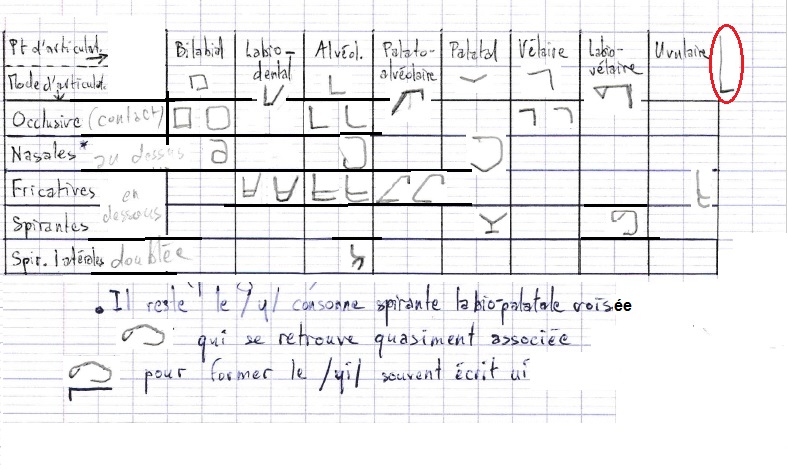 Pt d'articulat. Bilabial Labio-dental Alvéol. Palato-alvéolaire Palatal Vélaire Labio-vélaire Uvulaire
Mode d'articulat.
Occlusive (contact)
Nasales * au dessus
Fricatives en dessous
Spirantes
Spir. latérales doublée
• Il reste le /ɥ/ consonne spirante labio-palatale voisée
qui se retrouve quasiment associée
pour former le /ɥi/ souvent écrit ui